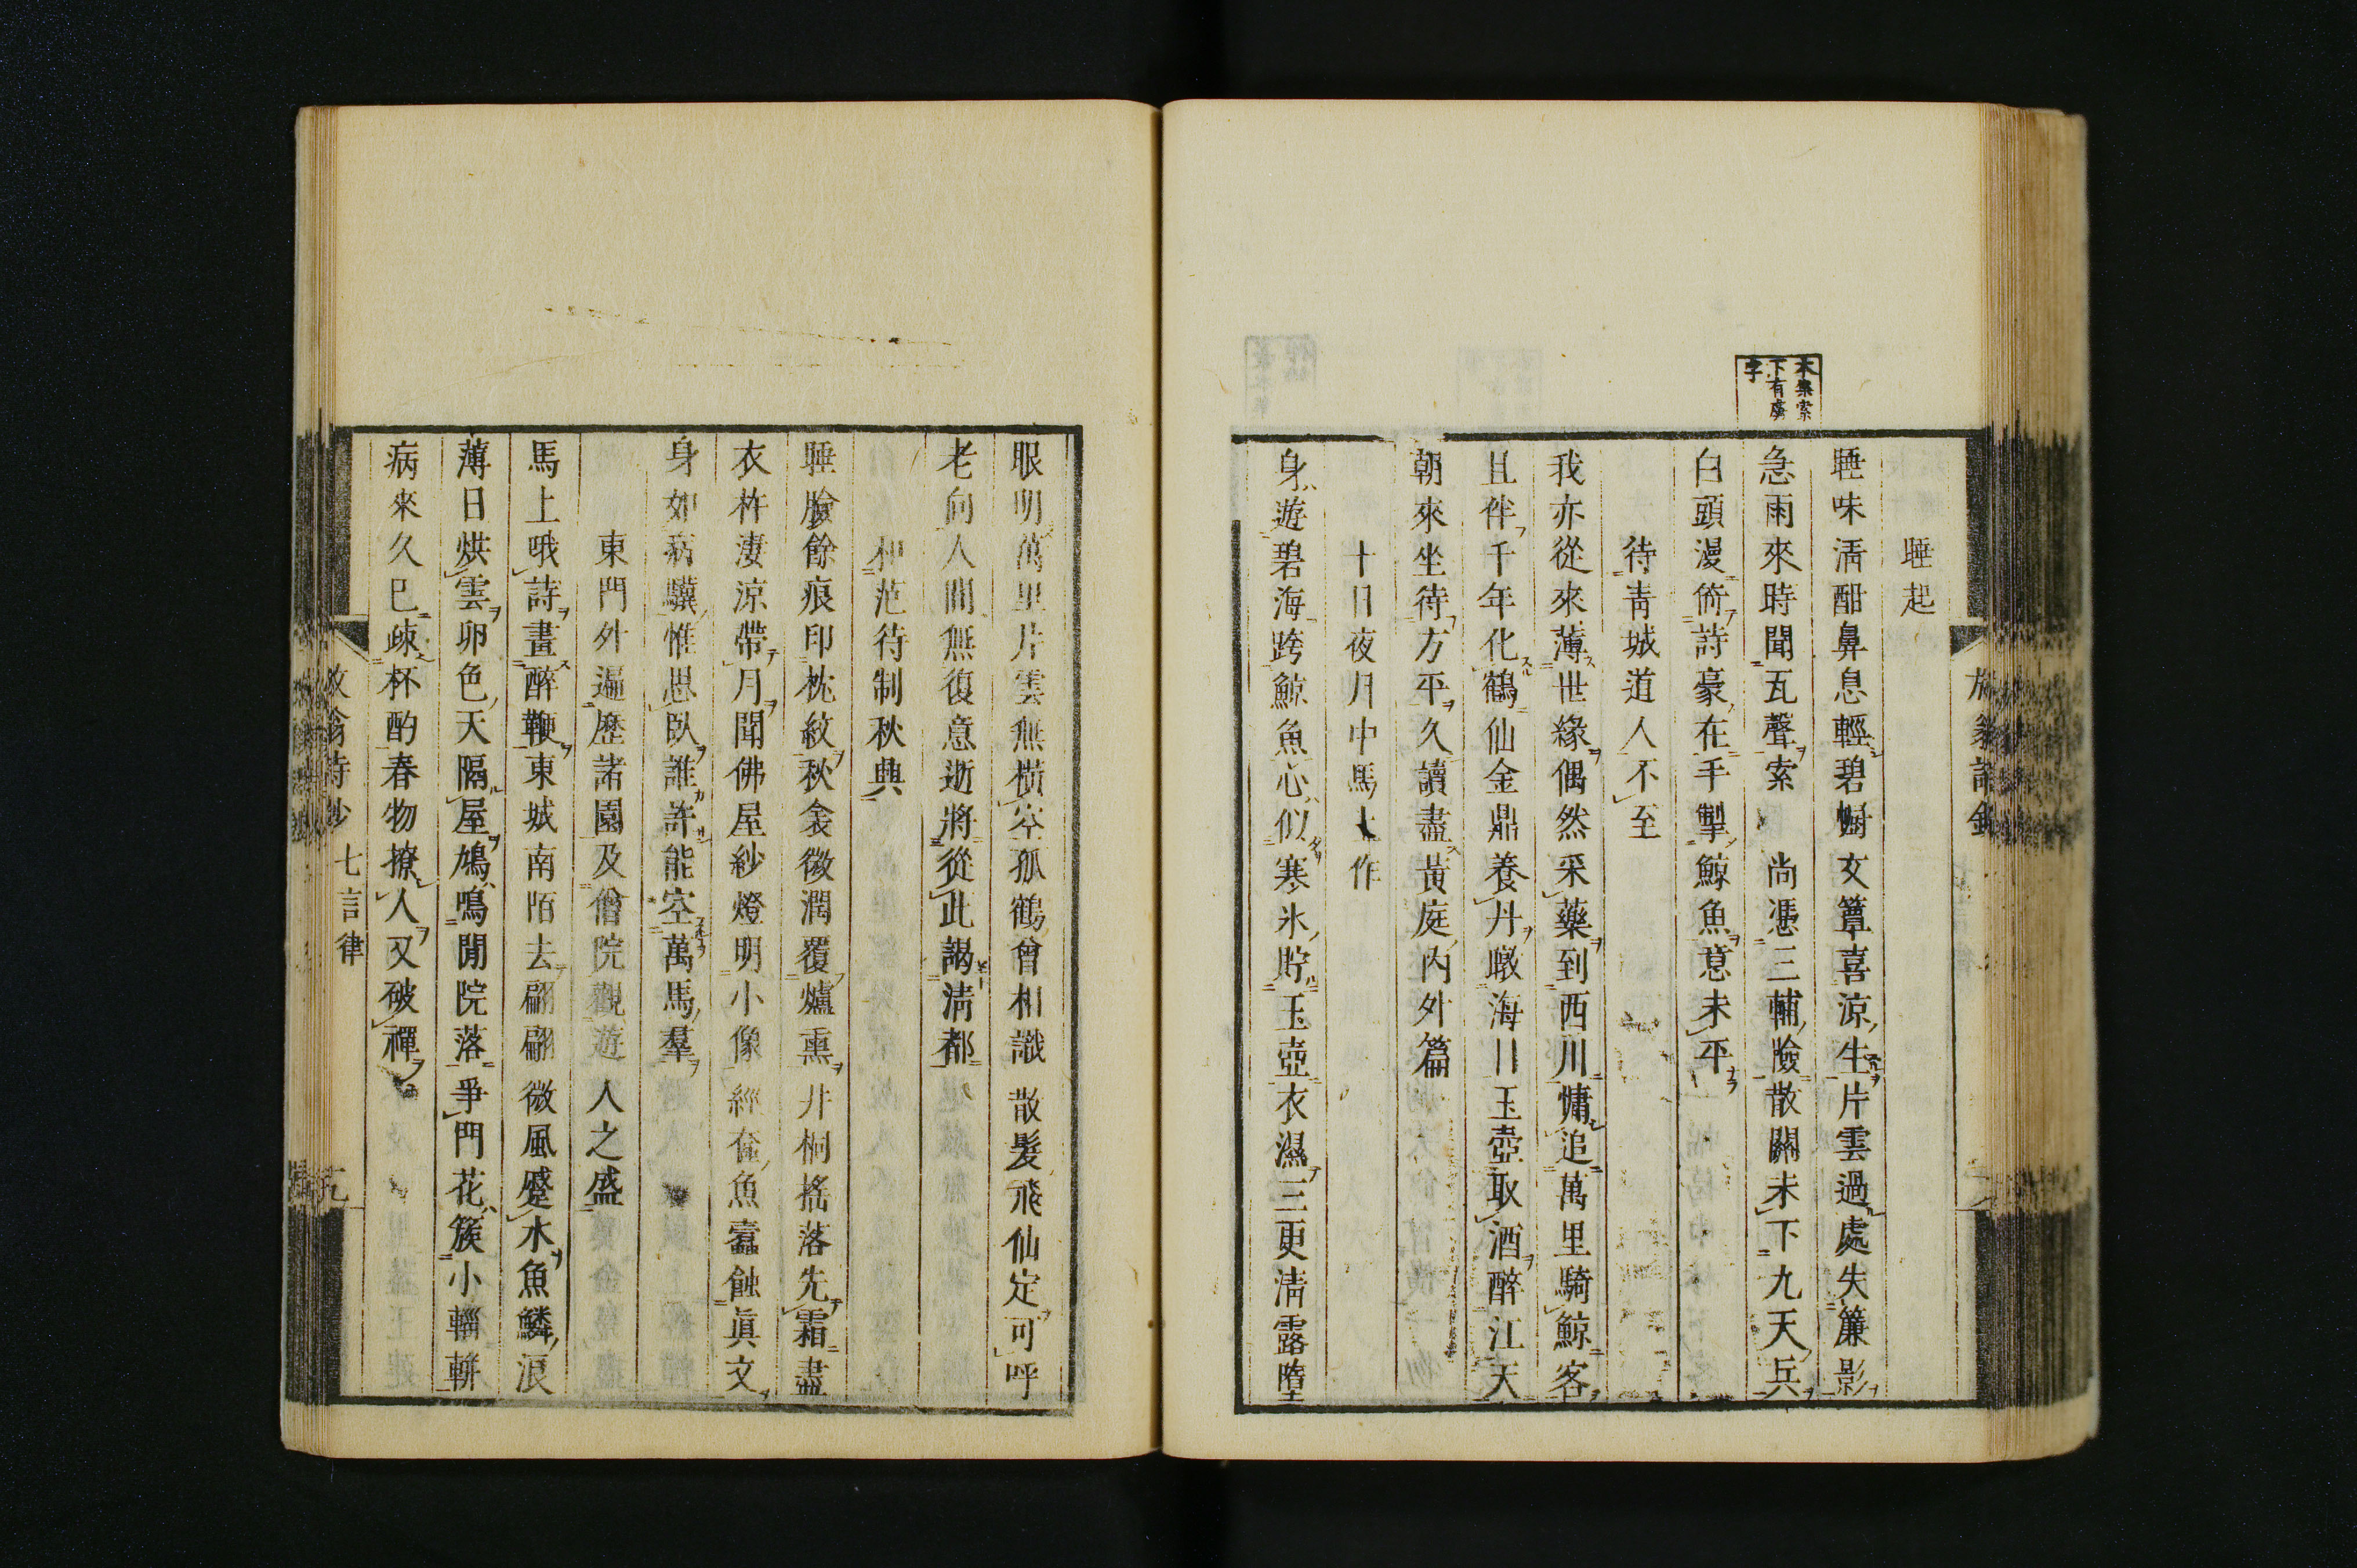 本集索
下有虜
字
睡起
睡味淸酣鼻息輕碧幮文簟喜涼生片雲過處失簾影
急雨來時聞瓦聲索　尚憑三輔險散關未下九天兵
白頭漫倚詩豪在手掣鯨魚意未平
待靑城道人不至
我亦從來薄世緣偶然采藥到西川慵追萬里騎鯨客
且伴千年化鶴仙金鼎養丹暾海日玉壺取酒醉江天
朝來坐待方平久讀盡黃庭內外篇
十日夜月中馬上作
身遊碧海跨鯨魚心似寒氷貯玉壺衣濕三更淸露墮
眼明萬里片雲無橫空孤鶴曾相識散髮飛仙定可呼
老向人間無復意逝將從此謁淸都
和范待制秋興
睡臉餘痕印枕紋秋衾微潤覆爐熏井桐搖落先霜盡
衣杵淒涼帶月聞佛屋紗燈明小像經奩魚蠹蝕眞文
身如病驥惟思臥誰許能空萬馬羣
東門外遍歷諸園及僧院觀遊人之盛
馬上哦詩畫醉鞭東城南陌去翩翩微風蹙水魚鱗浪
薄日烘雲卵色天隔屋鳩鳴閒院落爭門花簇小輜軿
病來久已疎杯酌春物撩人又破禪
放翁詩鈔　七言律